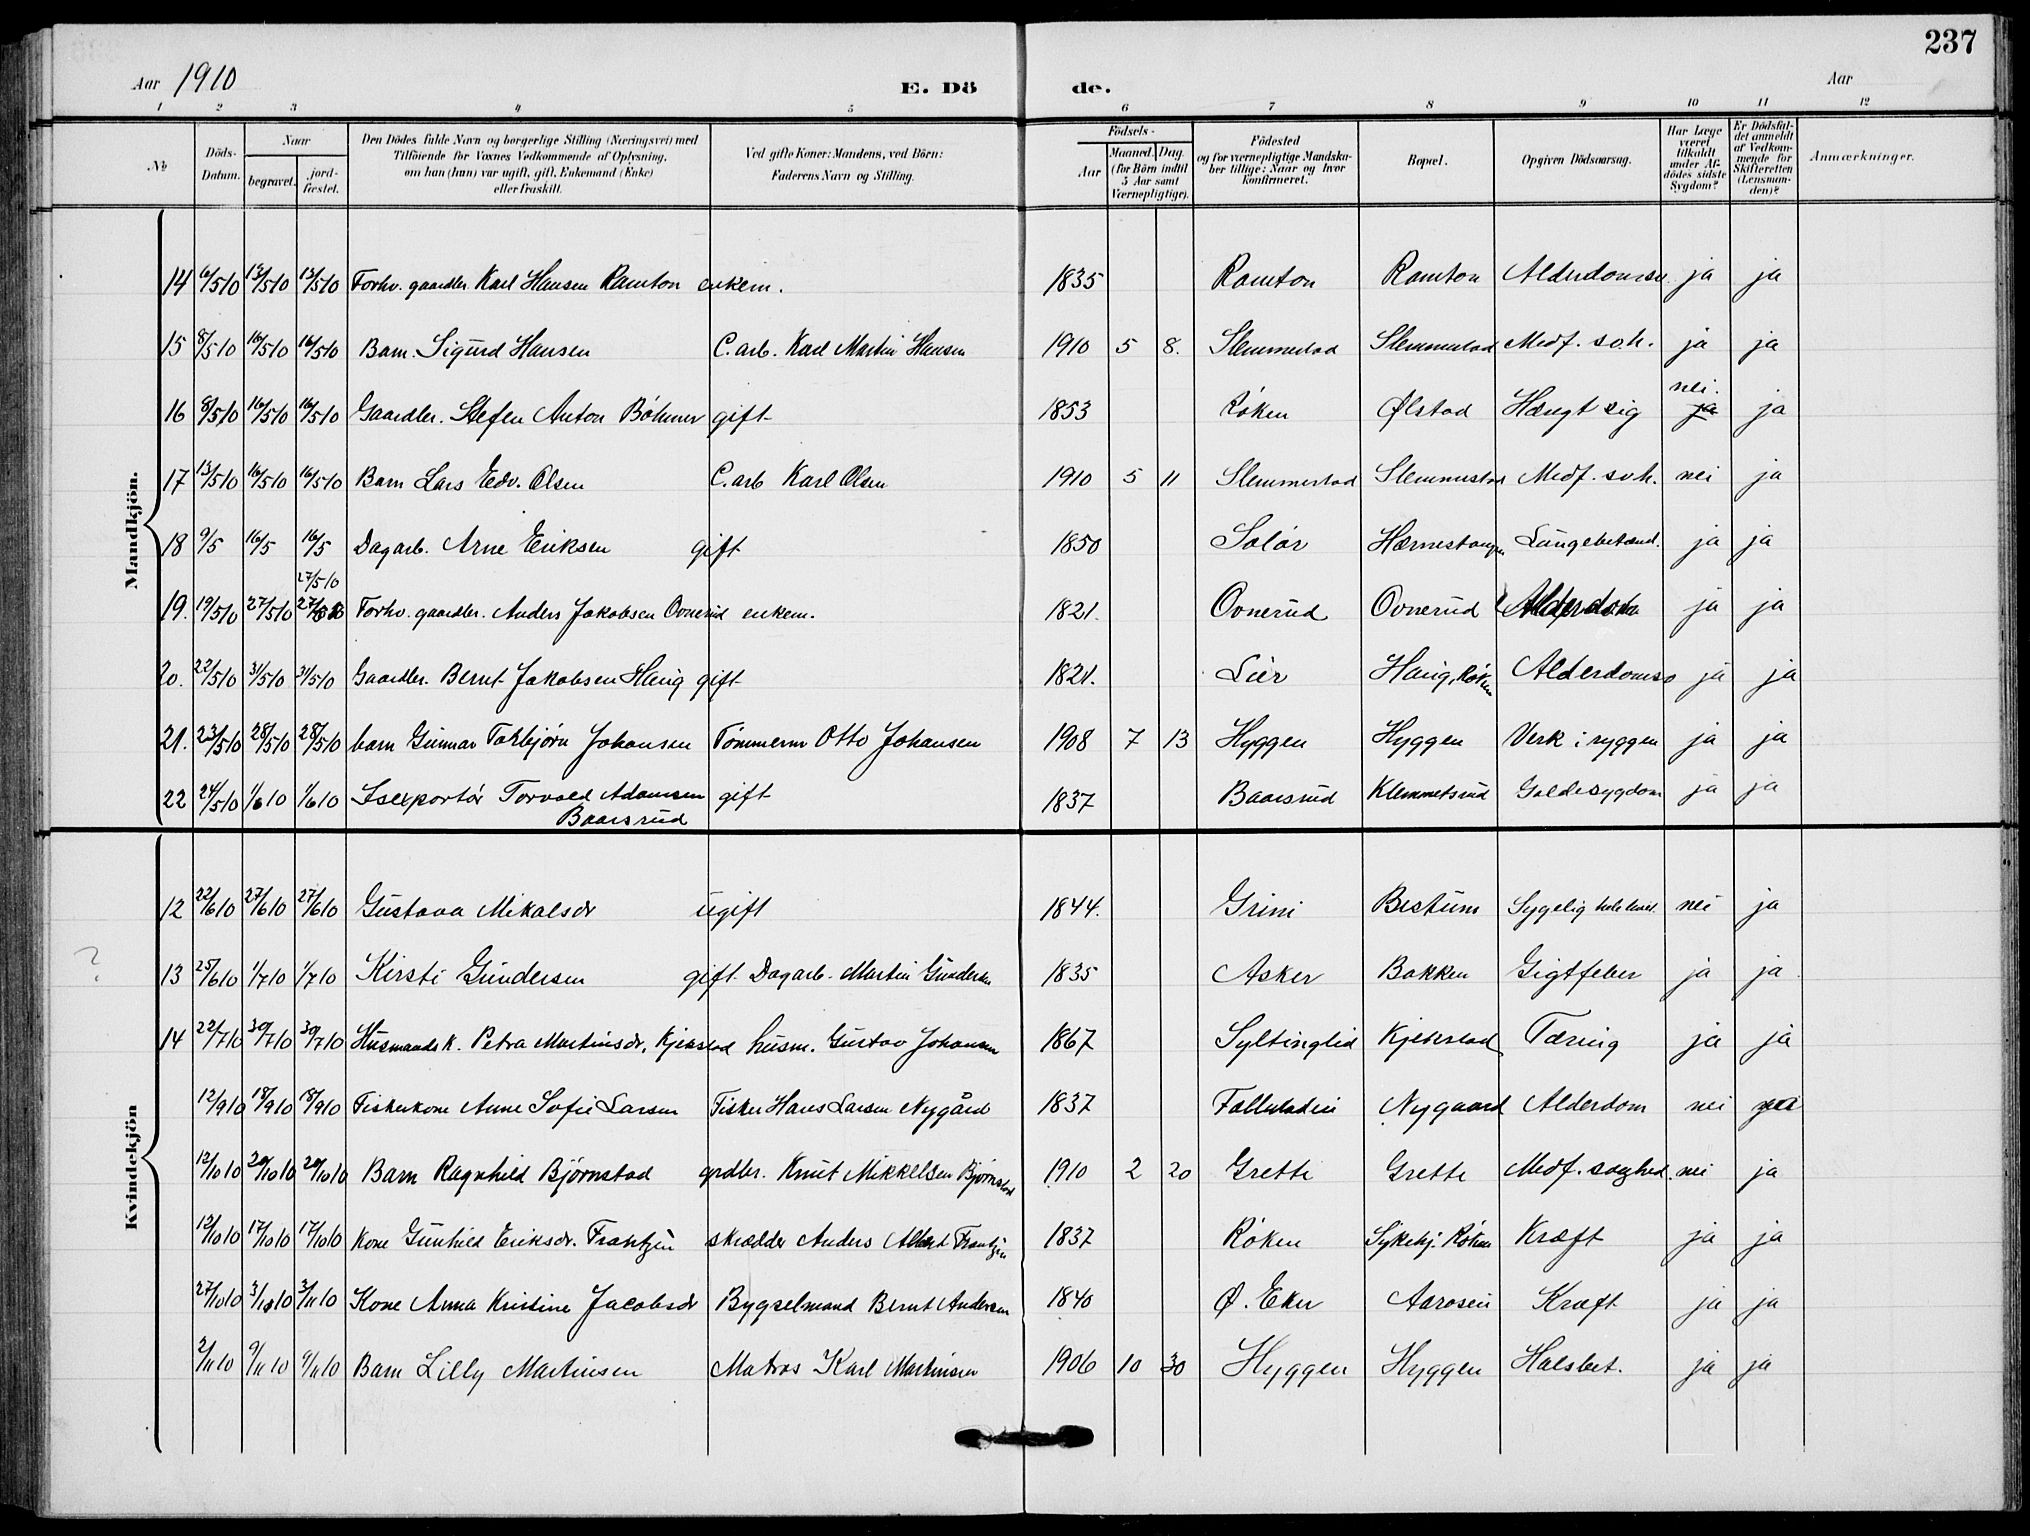 237
Aar 1910 E. Dö de. Aar
1 2 3 4 5 6 7 8 9 10 11 12
№ Döds-Datum. Naar begravet. jord-fæstet. Den Dödes fulde Navn og borgerlige Stilling (Næringsvei) med Tilföiende for Voxnes Vedkommende af Oplysning, om han (hun) var ugift, gift, Enkemand (Enke) eller fraskilt. Ved gifte Koner: Mandens, ved Börn: Faderens Navn og Stilling. Födsels- Aar Maaned. Dag. (for Börn indtil 5 Aar samt Værnepligtige). Födested og for værnepligtige Mandska-ber tillige: Naar og hvor konfirmeret. Bopæl. Opgiven Dödsaarsag. Har Læge været tilkaldt under Af-dödes sidste Sygdom? Er Dödsfal-det anmeldt af Vedkom-mende for Skifteretten (Lensman-den)? Anmærkninger.
Mandkjön.
14 6/510 13/510 13/510 Forhv. gaardbr. Karl Hansen Ramton enkem. 1835 Ramton Ramton Alderdomsv. ja ja
15 8/510 16/510 16/510 Barn Sigurd Hansen C. arb. Karl Martin Hansen 1910 5 8. Slemmestad Slemmestad Medf. svh. ja ja
nei.
16 8/510 16/510 16/510 Gaardbr. Stefen Anton Böhmer gift 1853 Röken Ølstad Hængt sig ja ja
17 13/510 16/510 16/510 Barn Lars Edv. Olsen C. arb Karl Olsen 1910 5 11 Slemmestad Slemmestad Medf. svh. nei ja
18 9/5 16/5 16/5 Dagarb. Arne Eriksen gift 1850 Solör Hærnestangen Lungebetænd. ja ja
27/510
19. 19/510 27/510 Forhv. gaardbr. Anders Jakobsen Ovnerud enkem. 1821. Ovnerud Ovnerud Alderdom ja ja
20. 22/510 31/510 31/510 Gaardbr. Bernt Jakobsen Haug gift 1821. Lier Haug, Röken Alderdomsv ja ja
21. 23/510 28/510 28/510 barn Gunnar Torbjörn Johansen Tömmerm Otto Johansen 1908 7 13 Hyggen Hyggen Verk i ryggen ja ja
22 24/510 1/610 1/610 Isexportör Torvald Adamsen gift 1837 Baarsrud Klemmetsrud Galdesygdom ja ja
Baarsrud
Kvindekjön
12 22/610 27/610 27/610 Gustava Mikalsdr ugift 1844. Grini Bestum Sygelig hele livet. nei ja
?
13 25/610 1/710 1/710 Kirsti Gundersen gift Dagarb. Martin Gundersen 1835 Asker Bakken Gigtfeber ja ja
14 22/710 30/710 30/710 Husmandsk. Petra Martinsdr, Kjekstad husm. Gustav Johansen 1867 Syltinglid Kjekstad Tæring ja ja
12/910 18/910 18/910 Fiskerkone Anne Sofie Larsen Fisker Hans Larsen Nygård 1837 Nygaard Alderdom nei
12/1010 20/1010 20/1010 Barn Ragnhild Björnstad grdbr. Knut Mikkelsen Björnstad 1910 2 20 Grette Grette Medf. svaghed. nei ja
12/1010 17/1010 17/1010 Kone Gunhild Eriksdr. Frantzen skrædder Anders Albert Frantzen 1837 Röken Sykehj. Röken Kræft ja ja
27/1010 3/1010 3/1110 Kone Anna Kristine Jacobsdr Bygselmand Bernt Andersen 1840 Ø. Eker Aarosen Kræft ja ja
2/1110 9/1110 9/1110 Barn Lilly Martinsen Matros Karl Martinsen 1906 10 30 Hyggen Hyggen Halsbet. ja ja